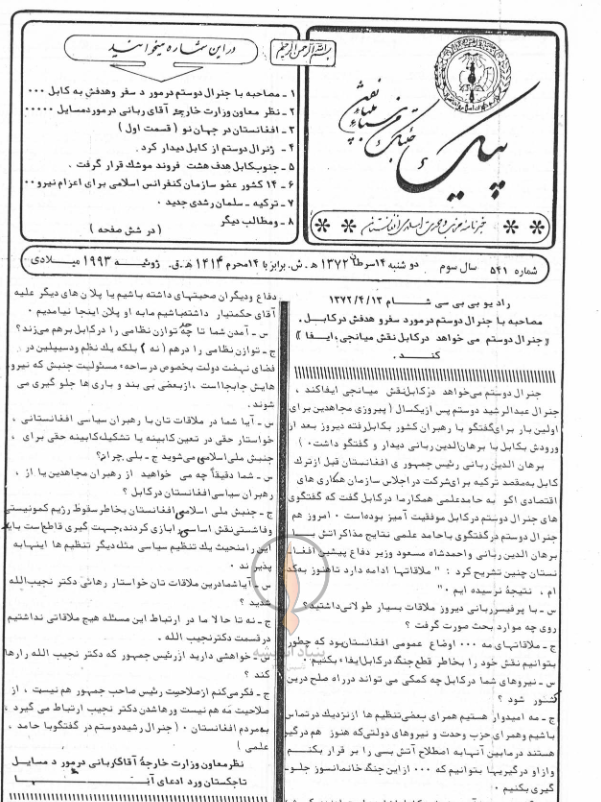 بسم الله الرحمن الرحیم
پیک
خبرنامه حزب وحدت اسلامی افغانستان
در این شماره میخوانید
۱ - مصاحبه با جنرال دوستم درمورد سفر وهدفش به کابل ۰۰۰
۲ - نظر معاون وزارت خارجه آقای ربانی درمورد مسایل ۰۰۰۰۰
۳ - افغانستان در جهان نو ( قسمت اول )
۴ - ژنرال دوستم از کابل دیدار کرد .
۵ - جنوب کابل هدف هشت فروند موشک قرار گرفت .
۶ - ۱۴ کشور عضو سازمان کنفرانس اسلامی برای اعزام نیرو ۰۰
۷ - ترکیه - سلمان رشدی جدید ۰
۸ - ومطالب دیگر
( در شش صفحه )
شماره ۵۴۱ سال سوم دوشنبه ۱۴ سرطان ۱۳۷۲ ه . ش . برابر با ۱۴ محرم ۱۴۱۴ ه . ق . ژوئیه ۱۹۹۳ میلادی
رادیو بی بی سی شام ۱۳۷۲/۴/۱۳
مصاحبه با جنرال دوستم درمورد سفرو هدفش درکابل .
" جنرال دوستم می خواهد درکابل نقش میانجی ، ایفا
کند .
جنرال دوستم می خواهد درکابل نقش میانجی ایفاکند ،
جنرال عبدالرشید دوستم پس ازیکسال ( پیروزی مجاهدین برای
اولین بار برای گفتگو با رهبران کشور بکابل رفته دیروز بعد از
ورودش بکابل با برهان الدین ربانی دیدار و گفتگو داشت ۰ )
برهان الدین ربانی رئیس جمهوری افغانستان قبل ازترک
کابل به مقصد ترکیه برای شرکت در اجلاس سازمان همکاری های
اقتصادی اکو به حامد علمی همکار ما درکابل گفت که گفتگوی
های جنرال دوستم درکابل موفقیت آمیز بوده است ۰ امروز هم
جنرال دوستم در گفتگوی با حامد علمی نتایج مذاکراتش با
برهان الدین ربانی واحمدشاه مسعود وزیر دفاع پیشین افغا‌ن
نستان چنین تشریح کرد : " ملاقاتها ادامه دارد تاهنوز به کد
ام ، نتیجهٔ نرسیده ایم ۰"
س - با پرفیسر ربانی دیروز ملاقات بسیار طولانی داشتید ؟
روی چه موارد بحث صورت گرفت ؟
ج - ملاقاتهای مه ۰۰۰ اوضاع عمومی افغانستان بود که چطور
بتوانیم نقش خود را بخاطر قطع جنگ درکابل ایفاء بکنیم ۰
س - نیروهای شما درکابل چه کمکی می تواند درراه صلح درین
کشور شود ؟
ج - مه امیدوار هستیم همرای بعضی تنظیم ها ازنزدیک درتماس
باشیم وهمرای حزب وحدت و نیروهای دولتی که هنوز هم درگیر
هستند درمابین آنها به اصطلاح آتش بسی را بر قرار بکنیم
واز او درگیریها بتوانیم که ۰۰۰ از این جنگ خانمانسوز جلو-
گیری بکنیم ۰
دفاع ودیگران صحبتهای داشته باشیم یا پلان های دیگر علیه
آقای حکمتیار داشته باشیم ما به او پلان اینجا نیامدیم ۰
س - آمدن شما تا چه حد توازن نظامی را درکابل برهم می زند ؟
ج - توازن نظامی را درهم ( نه ) بلکه یک نظم ودسیپلین در
فضای نهفت دولت بخصوص در ساحهء مسئولیت جنبش که نیرو
هایش جابجا است ، از بعضی بی بند و باری ها جلو گیری می
شوند .
س - آیا شما در ملاقات تان با رهبران سیاسی افغانستانی ،
خواستار حقی در تعین کابینه یا تشکیل کابینه حقی برای ،
جنبش ملی اسلامی می شوید ج - بلی چرا نی
س - شما دقیقاً چه می خواهید از رهبران مجاهدین یا از ،
رهبران سیاسی افغانستان درکابل ؟
ج - جنبش ملی اسلامی افغانستان بخاطر سقوط رژیم کمونیستی
وفاشستی نقش اساسی را بازی کردند ، جهت گیری قاطع است باید
این را منحیث یک تنظیم سیاسی مثل دیگر تنظیم ها اینها به
پذیرند ۰
س - آیا شما درین ملاقات تان خواستار رهائی دکتر نجیب الله
شدید ؟
ج - نه تا حالا ما در ارتباط این مسئله هیچ ملاقاتی نداشتیم
درقسمت دکتر نجیب الله .
س - خواهشی دارید ازرئیس جمهور که دکتر نجیب الله را رها
کند ؟
ج - فکر می کنم از صلاحیت رئیس صاحب جمهور هم نیست ، از
صلاحیت مه هم نیست ورها شدن دکتر نجیب ارتباط می گیرد ،
به مردم افغانستان ۰ ( جنرال رشید دوستم در گفتگو با حامد ،
علمی )
نظر معاون وزارت خارجهٔ آقای ربانی درمورد مسایل
تاجکستان ورد ادعای آنها
بنیاد اندیشه